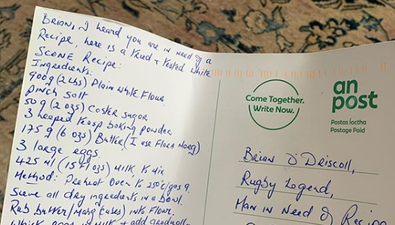 Brian, I heard you are in need of a
Recipe, here is a tried & tested white
Scone Recipe:
Ingredients:
900g (2lbs) Plain white Flour
Pinch Salt
50g (2 ozs) Caster sugar
3 heaped teasp baking powder
175g (6 ozs) Butter (I use Flora Marg)
3 large eggs
425 ml (15 fl ozs) milk
Method: Preheat Oven
Sieve all dry ingredients in a bowl.
Rub butter/marg into Flour.
Whisk eggs milk + add gradually
Come Together.
Write Now.
an
post
Postas Íoctha
Postage Paid
Brian O'Driscoll,
Rugby Legend,
Man in Need of Recipe